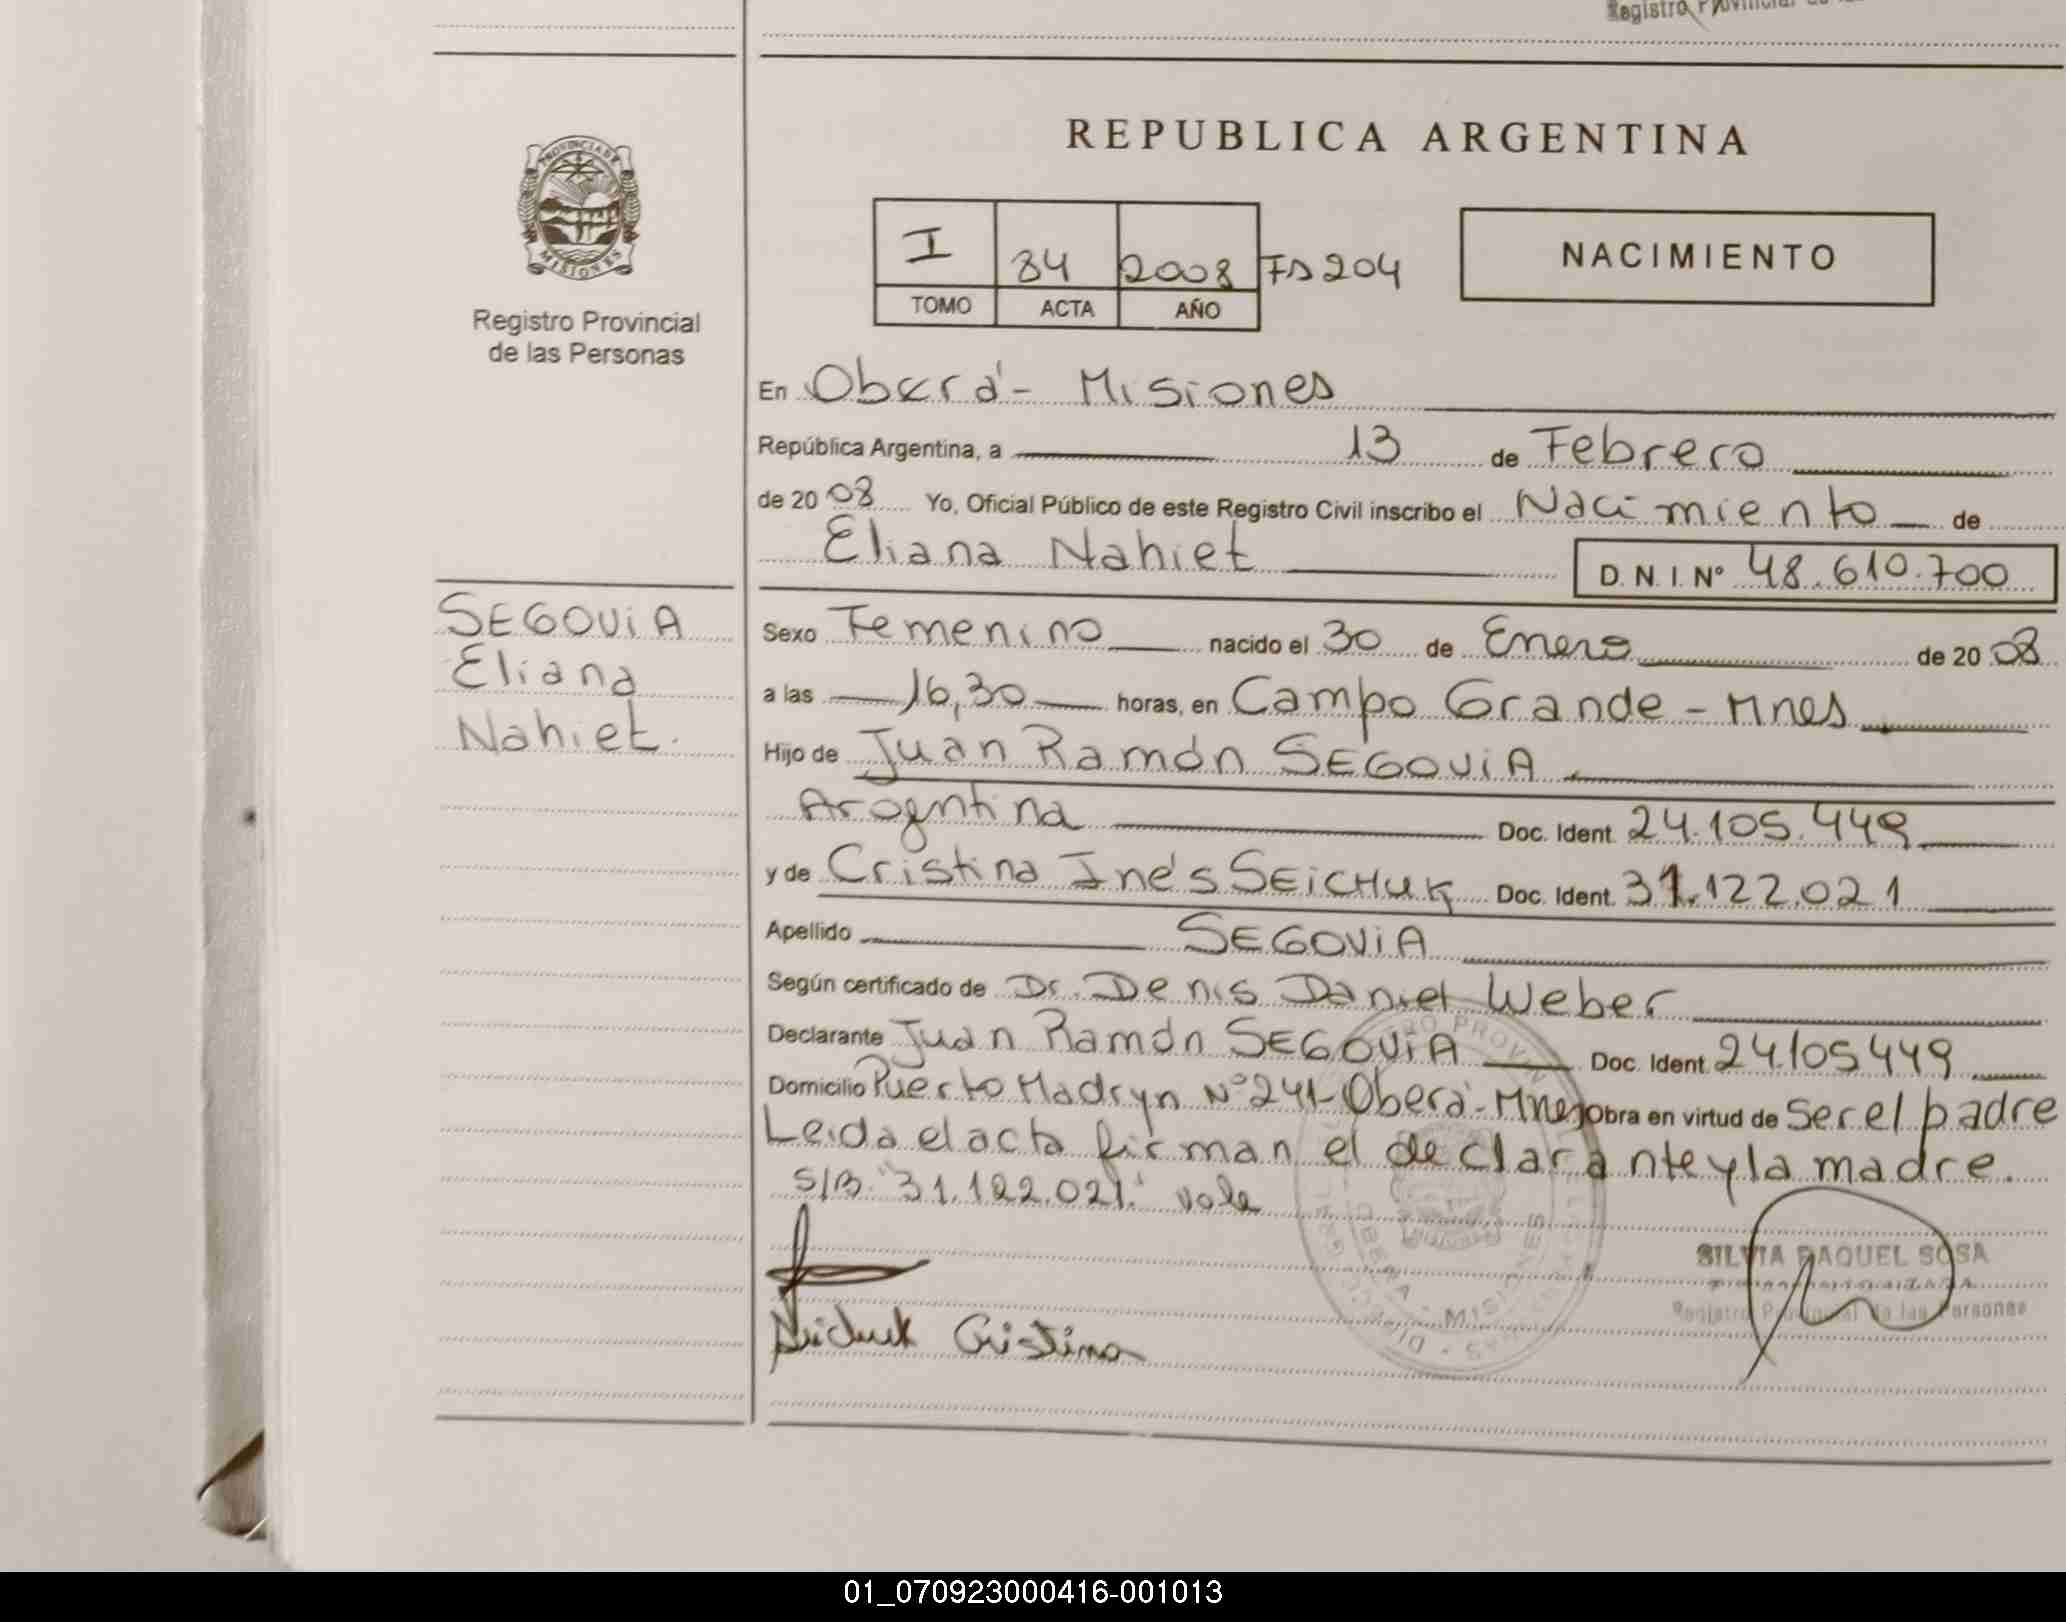 Registro Provincial de las
REPUBLICA ARGENTINA
PROVINCIA DE
MISIONES
Registro Provincial
de las Personas
I 84 2008 Fs 204
TOMO ACTA AÑO
NACIMIENTO
En Oberá - Misiones
República Argentina, a 13 de Febrero
de 20 08 Yo, Oficial Público de este Registro Civil inscribo el Nacimiento de
Eliana Nahiet D.N.I. Nº 48.610.700
SEGOViA
Eliana
Nahiet.
Sexo Femenino nacido el 30 de Enero de 20 08
a las 16,30 horas, en Campo Grande - Mnes
Hijo de Juan Ramón SEGOViA
Argentina Doc. Ident. 24.105.449
y de Cristina Inés SEiCHUK Doc. Ident. 31.122.021
Apellido SEGOViA
Según certificado de Dr. Denis Daniel Weber
Declarante Juan Ramón SEGOViA Doc. Ident. 24.105449
Domicilio Puerto Madryn Nº 241-Oberá-Mnes obra en virtud de ser el padre
Leida el acta firman el declarante y la madre.
S/B. "31.122.021." vale
SILVIA RAQUEL SOSA
Registro Provincial de las Personas
Seichuk Cristina
OBERA - MISIONES
01_070923000416-001013